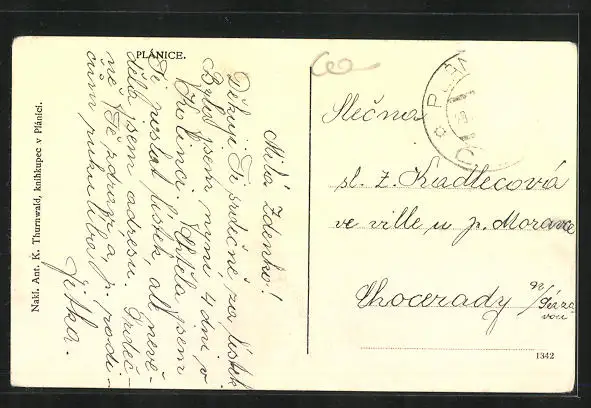 PLÁNICE.
Nakl. Ant. K. Thurnwald, knihkupec v Plánici.
Milá Zdenko!
Děkuji Ti srdečně za lístek.
Byla jsem nyní 4 dni v
Kolinci. Chtěla jsem
Ti poslat lístek, ale nevě-
děla jsem adresu. Srdeč-
ně Tě zdraví a p. rodi-
čům ruku líbá
Jitka.
PLÁN
Slečna
sl. Z. Kadlecová
ve ville u p. Moravce
Chocerady n/Sáza
vou
1342